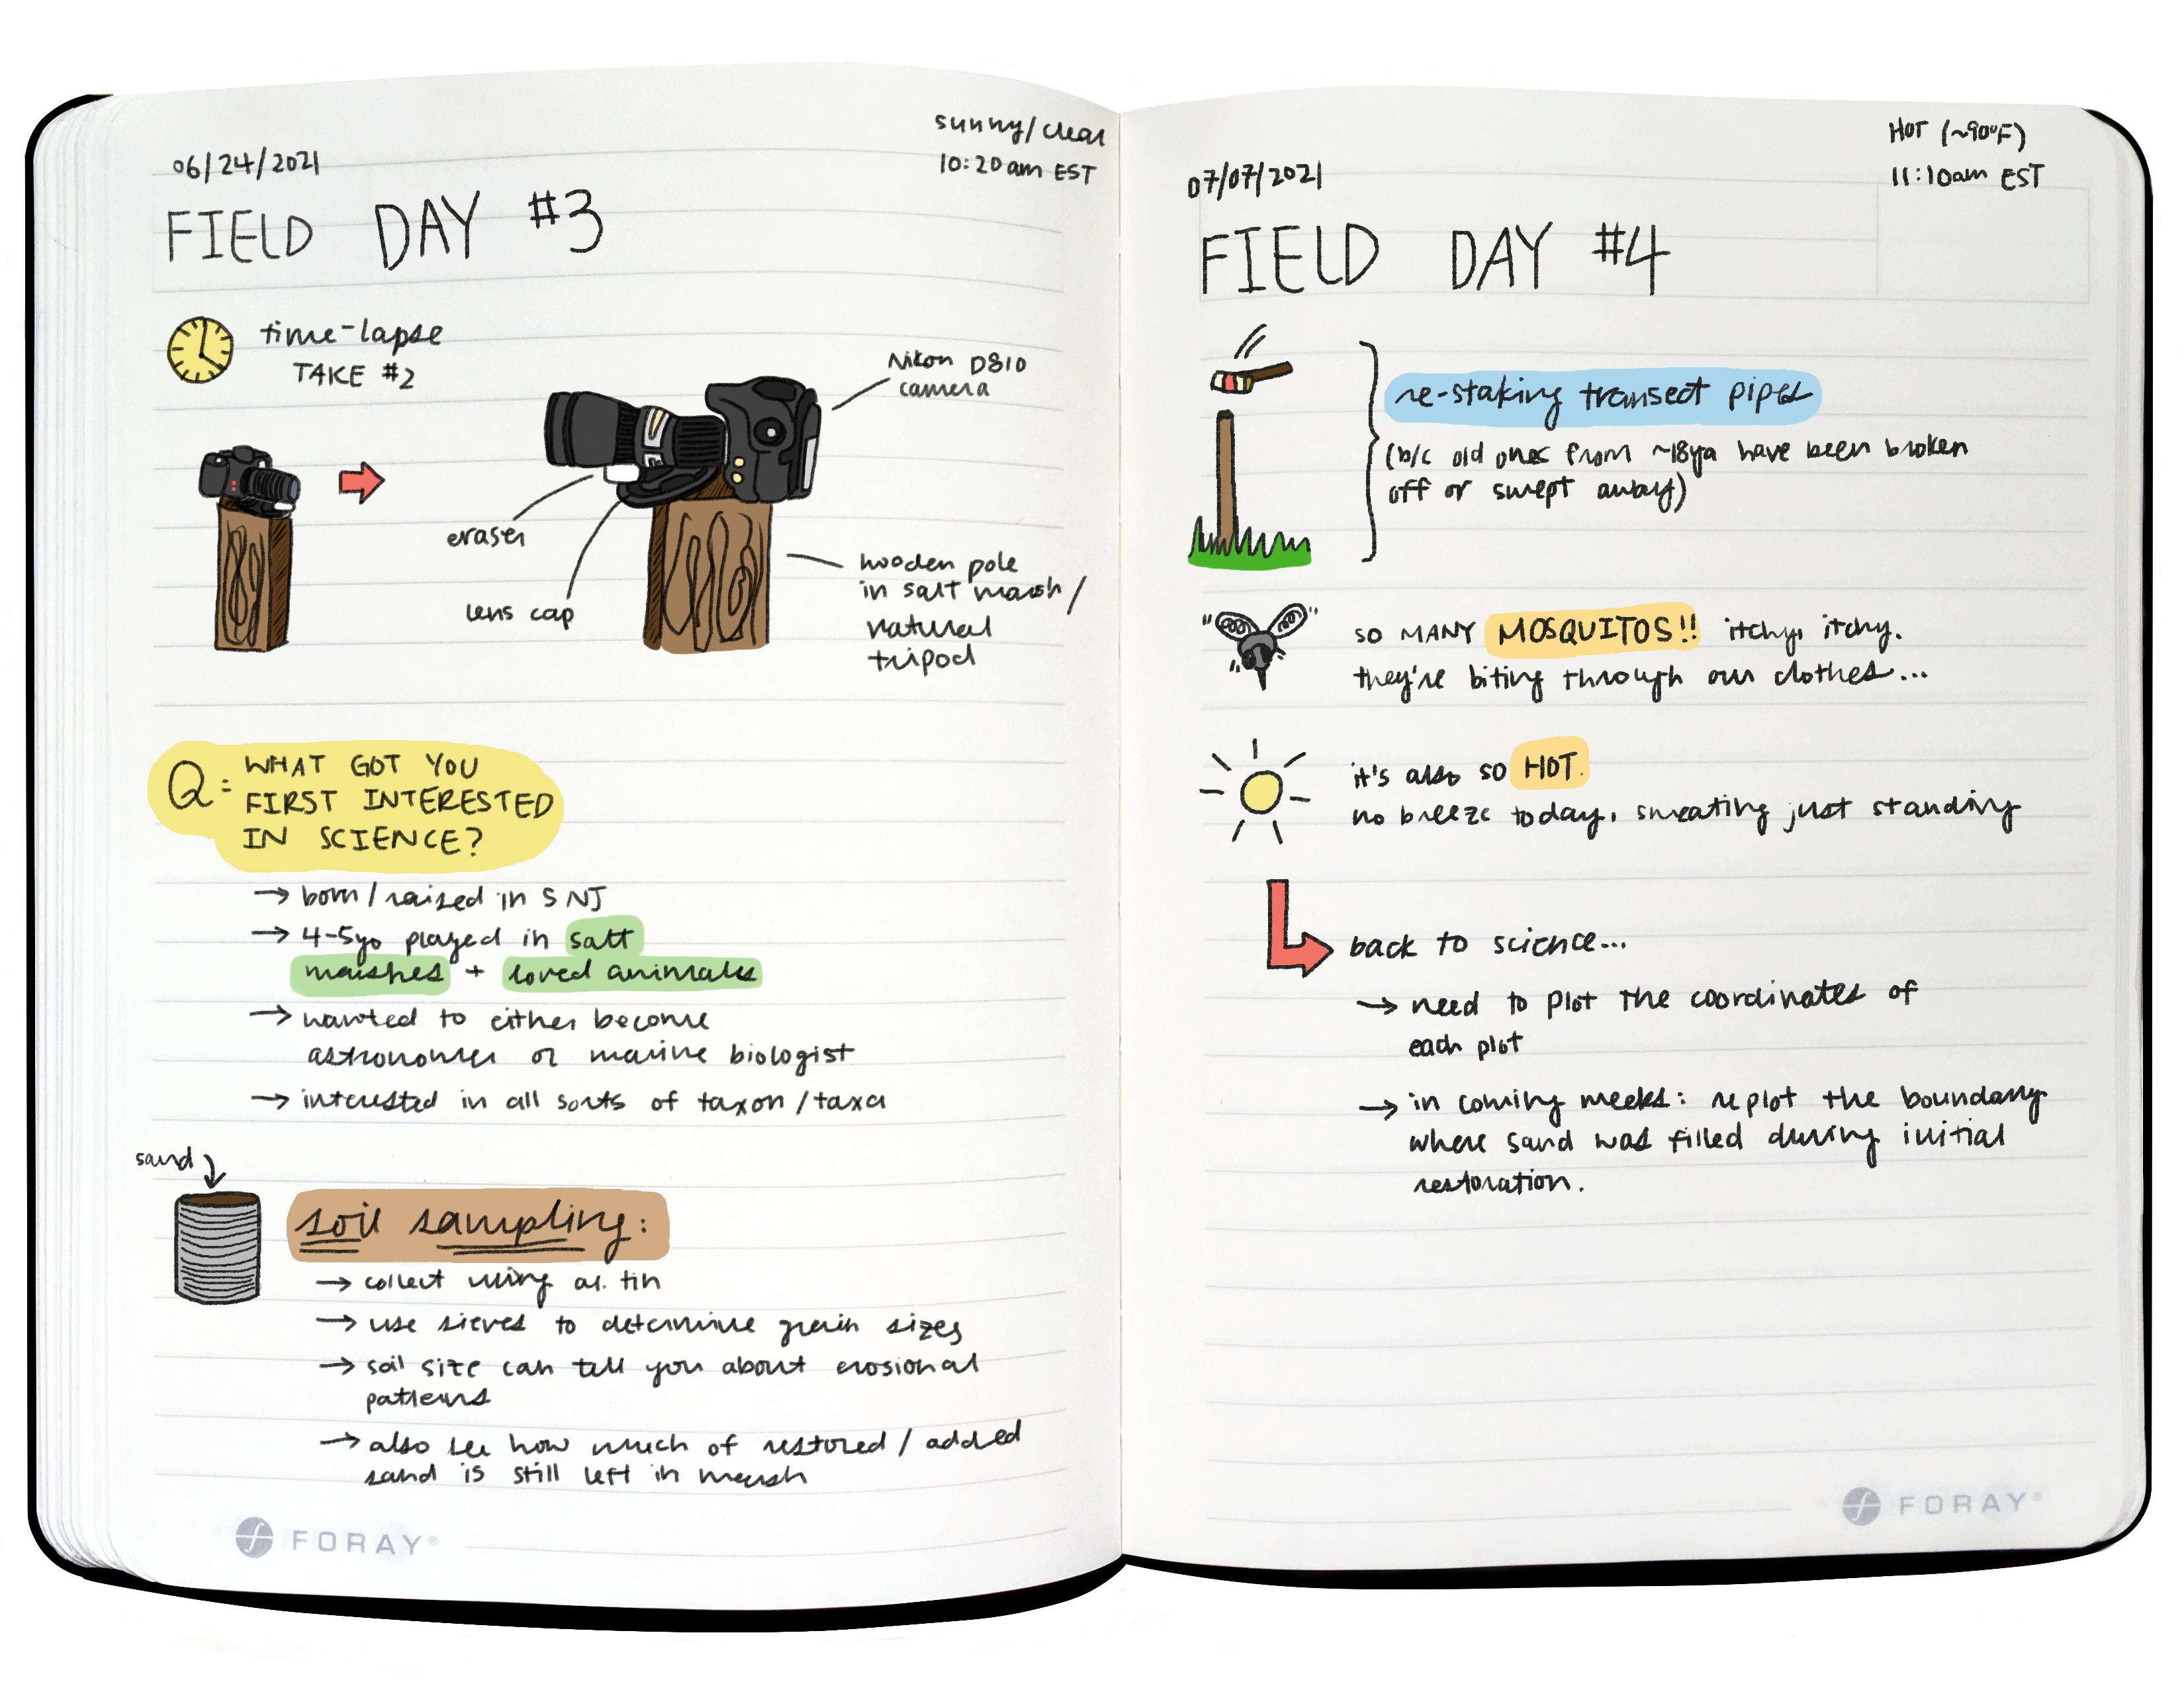 06/24/2021
sunny/clear
10:20am EST
FIELD DAY #3
time-lapse
TAKE #2
Nikon D810
camera
eraser
lens cap
wooden pole
in salt marsh/
natural
tripod
Q: WHAT GOT YOU
FIRST INTERESTED
IN SCIENCE?
→ born/raised in S NJ
→ 4-5yo played in salt
marshes + loved animals
→ wanted to either become
astronomer or marine biologist
→ interested in all sorts of taxon/taxa
sand
soil sampling:
→ collect using al. tin
→ use sieves to determine grain sizes
→ soil size can tell you about erosional
patterns
→ also see how much of restored/added
sand is still left in marsh
FORAY®
07/07/2021
HOT (~90°F)
11:10am EST
FIELD DAY #4
re-staking transect pipes
(b/c old ones from ~18ya have been broken
off or swept away)
SO MANY MOSQUITOS!! itchy, itchy.
they're biting through our clothes...
it's also so HOT.
no breeze today, sweating just standing
back to science...
→ need to plot the coordinates of
each plot
→ in coming weeks: replot the boundary
where sand was filled during initial
restoration.
FORAY®